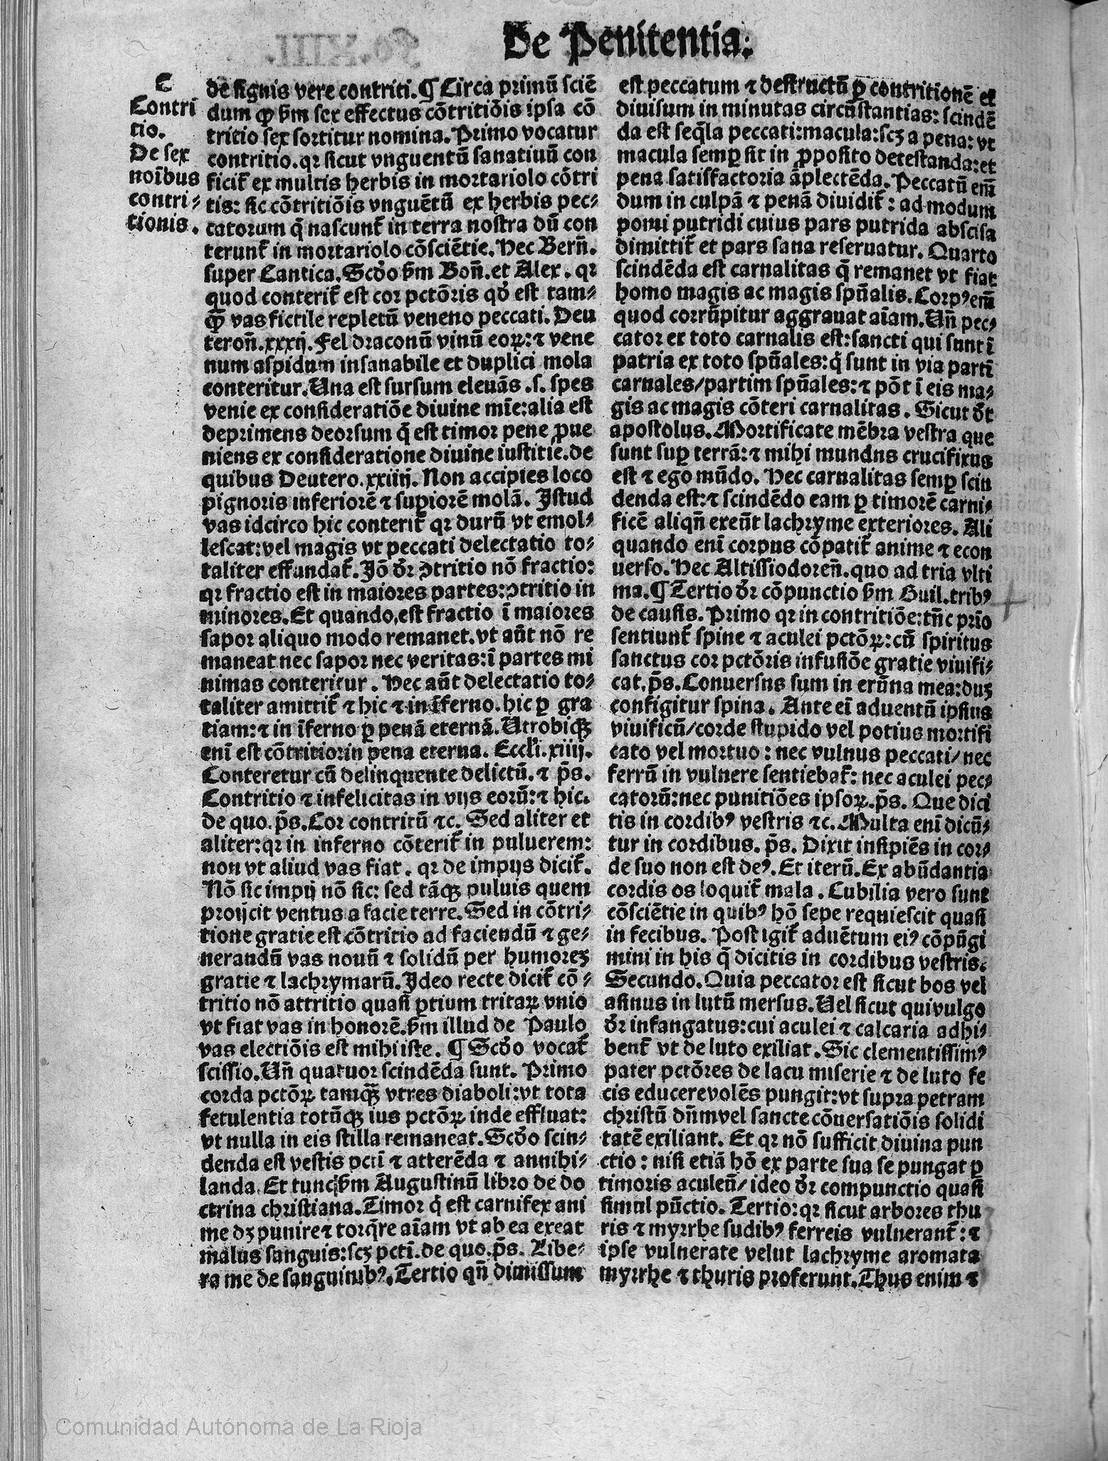 De Penitentia.
C
Contri
tio.
De sex
noībus
contri⸗
tionis.
de signis vere contriti. ¶ Circa primū sciē
dum ꝙ ẜm sex effectus cōtritiōis ipsa cō
tritio sex sortitur nomina. Primo vocatur
contritio. qꝛ sicut vnguentū sanatiuū con
ficit̃ ex multis herbis in mortariolo cōtri
tis: sic cōtritiōis vnguētū ex herbis pec⸗
catorum q̄ nascunt̃ in terra nostra dū con
terunt̃ in mortariolo cōsciētie. Hec Bern̄.
super Cantica. Scd̄o ẜm Bon̄. et Alex. qꝛ
quod conterit̃ est cor pctōris qd̄ est tam⸗
ꝙ̄ vas fictile repletū veneno peccati. Deu
teron̄. xxxij. Fel draconū vinū eoꝝ: ⁊ vene
num aspidum insanabile et duplici mola
conteritur. Una est sursum eleuās .s. spes
venie ex consideratiōe diuine mīe: alia est
deprimens deorsum q̄ est timor pene ꝓue
niens ex consideratione diuine iustitie. de
quibus Deutero. xxiiij. Non accipies loco
pignoris inferiorē ⁊ suꝑiorē molā. Istud
vas idcirco hic conterit̃ qꝛ durū vt emol⸗
lescat: vel magis vt peccati delectatio to⸗
taliter effundat̃. Iō dr̄ ↄtritio nō fractio:
qꝛ fractio est in maiores partes: ↄtritio in
minores. Et quando, est fractio ī maiores
sapor aliquo modo remanet. vt aūt nō re
maneat nec sapor nec veritas: ī partes mi
nimas conteritur. Hec aūt delectatio to⸗
taliter amittit̃ ⁊ hic ⁊ in īferno. hic ꝑ gra
tiam: ⁊ in īferno ꝑ penā eternā. Utrobiqꝫ
enī est cōtritio: in pena eterna. Eccl̄i. xiiij.
Conteretur cū delinquente delictū. ⁊ p̄s.
Contritio ⁊ infelicitas in vijs eorū: ⁊ hic.
de quo. p̄s. Cor contritū ⁊c. Sed aliter et
aliter: qꝛ in inferno cōterit̃ in puluerem:
non vt aliud vas fiat. qꝛ de impijs dicit̃.
Nō sic impij nō sic: sed tāqꝫ puluis quem
proijcit ventus a facie terre. Sed in cōtri⸗
tione gratie est cōtritio ad faciendū ⁊ ge⸗
nerandū vas nouū ⁊ solidū per humoreꝫ
gratie ⁊ lachrymarū. Ideo recte dicit̃ cō⸗
tritio nō attritio quasi ꝑtium tritaꝝ vnio
vt fiat vas in honorē. ẜm illud de Paulo
vas electiōis est mihi iste. ¶ Scd̄o vocat̃
scissio. Un̄ quatuor scindēda sunt. Primo
corda pctōꝝ tamqꝫ vtres diaboli: vt tota
fetulentia totūqꝫ ius pctōꝝ inde effluat:
vt nulla in eis stilla remaneat. Scd̄o scin⸗
denda est vestis pcti ⁊ atterēda ⁊ annihi⸗
landa. Et tuncẜm Augustinū libro de do
ctrina christiana. Timor q̇ est carnifex ani
me dꝫ punire ⁊ torq̄re aīam vt ab ea exeat
malus sanguis: scꝫ pcti. de quo. p̄s. Libe⸗
ra me de sanguinibꝰ. Tertio qn̄ dimissum
est peccatum ⁊ destructū ꝑ contritionē et
diuisum in minutas circūstantias: scindē
da est seq̄la peccati: macula: scꝫ a pena: vt
macula semꝑ sit in ꝓposito detestanda: et
pena satisfactoria āplectēda. Peccatū em̄
dum in culpā ⁊ penā diuidit̃: ad modum
pomi putridi cuius pars putrida abscisa
dimittit̃ et pars sana reseruatur. Quarto
scindēda est carnalitas q̄ remanet vt fiat
homo magis ac magis spūalis. Corpꝰ em̄
quod corrūpitur aggrauat aīam. Un̄ pec⸗
cator ex toto carnalis est: sancti qui sunt ī
patria ex toto spūales: q̇ sunt in via partī
carnales/partim spūales: ⁊ pōt ī eis ma⸗
gis ac magis cōteri carnalitas. Sicut dr̄
apostolus. Mortificate mēbra vestra que
sunt suꝑ terrā: ⁊ mihi mundns crucifixus
est ⁊ ego mūdo. Hec carnalitas semꝑ scin
denda est: ⁊ scindēdo eam ꝑ timorē carni⸗
ficē aliqn̄ exeūt lachryme exteriores. Ali
quando enī corpus cōpatit̃ anime ⁊ econ
uerso. Hec Altissiodoren̄. quo ad tria vlti
ma. ¶ Tertio dr̄ cōpunctio ẜm Guil. tribꝰ
de causis. Primo qꝛ in contritiōe: tūc prio
sentiunt̃ spine ⁊ aculei pctōꝝ: cū spiritus
sanctus cor pctōris infusiōe gratie viuifi⸗
cat. p̄s. Conuersns sum in erūna mea: duꝫ
configitur spina. Ante ei aduentū ipsius
viuificū/corde stupido vel potius mortifi
cato vel mortuo: nec vulnus peccati/nec
ferrū in vulnere sentiebat̃: nec aculei pec⸗
catorū: nec punitiōes ipsoꝝ. p̄s. Que dici
tis in cordibꝰ vestris ⁊c. Multa enī dicū⸗
tur in cordibus. p̄s. Dixit insipiēs in cor⸗
de suo non est deꝰ. Et iterū. Ex abūdantia
cordis os loquit̃ mala. Cubilia vero sunt
cōsciētie in quibꝰ hō sepe requiescit quasi
in fecibus. Post igit̃ aduētum eiꝰ cōpūgi
mini in his q̄ dicitis in cordibus vestris.
Secundo. Quia peccator est sicut bos vel
asinus in lutū mersus. Uel sicut qui vulgo
dr̄ infangatus: cui aculei ⁊ calcaria adhi⸗
bent̃ vt de luto exiliat. Sic clementissimꝰ
pater pctōres de lacu miserie ⁊ de luto fe
cis educere volēs pungit: vt supra petram
christū dn̄m vel sancte cōuersatiōis solidi
tatē exiliant. Et qꝛ nō sufficit diuina pun
ctio: nisi etiā hō ex parte sua se pungat ꝑ
timoris aculeū/ideo dr̄ compunctio quasi
simul pūctio. Tertio: qꝛ sicut arbores thu
ris ⁊ myrrhe sudibꝰ ferreis vulnerant̃: ⁊
ipse vulnerate velut lachryme aromata
myrrhe ⁊ thuris proferunt. Thus enim ⁊
(c) Comunidad Autónoma de La Rioja